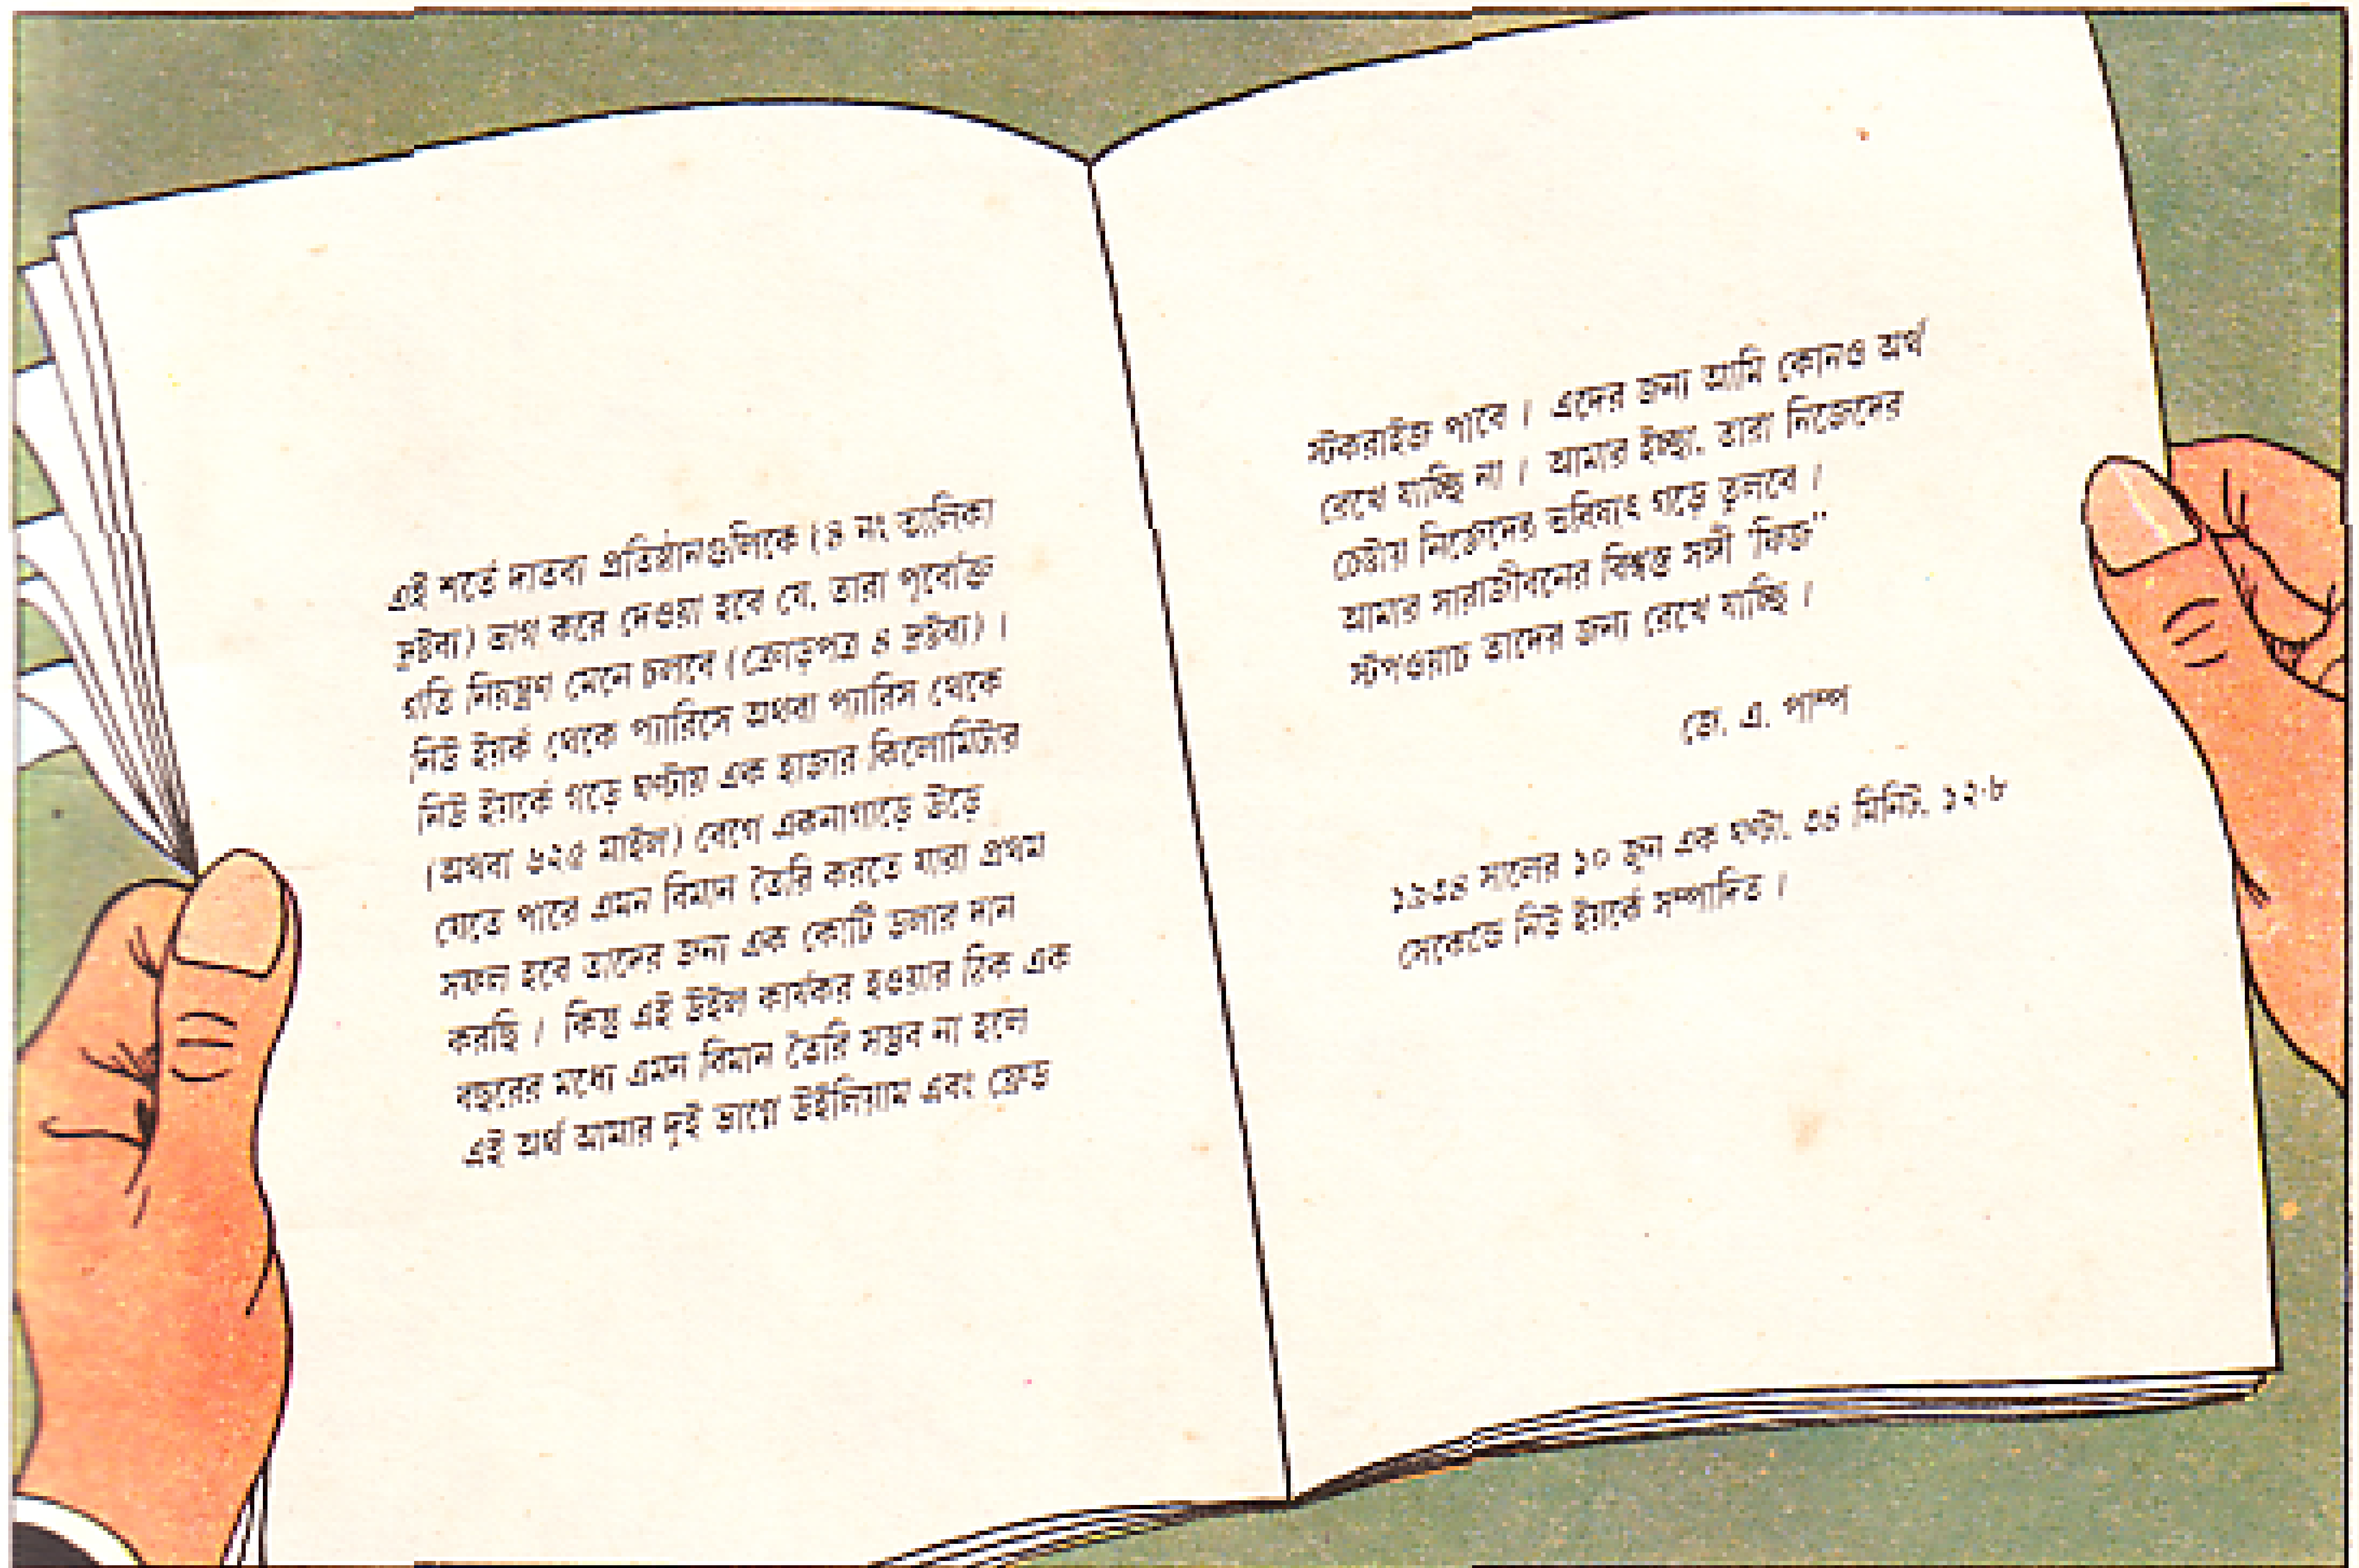 এই শর্তে দাতব্য প্রতিষ্ঠানগুলিকে (৪ নং তালিকা
দ্রষ্টব্য) ভাগ করে দেওয়া হবে যে, তারা পূর্বোক্ত
গতি নিয়ন্ত্রণ মেনে চলবে (ক্রোড়পত্র ৪ দ্রষ্টব্য) ।
নিউ ইয়র্ক থেকে প্যারিসে অথবা প্যারিস থেকে
নিউ ইয়র্কে গড়ে ঘণ্টায় এক হাজার কিলোমিটার
(অথবা ৬২৫ মাইল) বেগে একনাগাড়ে উড়ে
যেতে পারে এমন বিমান তৈরি করতে যারা প্রথম
সফল হবে তাদের জন্য এক কোটি ডলার দান
করছি । কিন্তু এই উইল কার্যকর হওয়ার ঠিক এক
বছরের মধ্যে এমন বিমান তৈরি সম্ভব না হলে
এই অর্থ আমার দুই ভাগ্নে উইলিয়াম এবং ফ্রেড
স্টকরাইজ পাবে । এদের জন্য আমি কোনও অর্থ
রেখে যাচ্ছি না । আমার ইচ্ছা, তারা নিজেদের
চেষ্টায় নিজেদের ভবিষ্যৎ গড়ে তুলবে ।
আমার সারাজীবনের বিশ্বস্ত সঙ্গী "কিজ"
স্টপওয়াচ তাদের জন্য রেখে যাচ্ছি ।
জে. এ. পাম্প
১৯৩৪ সালের ১০ জুন এক ঘণ্টা, ৩৪ মিনিট, ১২·৮
সেকেন্ডে নিউ ইয়র্কে সম্পাদিত ।